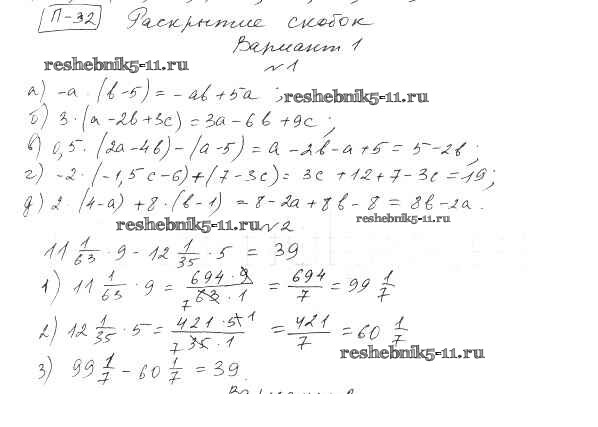 П-32 Раскрытие скобок
Вариант 1
reshebnik5-11.ru
№1
а) -a · (b-5) = -ab + 5a ; reshebnik5-11.ru
б) 3 · (a - 2b + 3c) = 3a - 6b + 9c ;
в) 0,5 · (2a - 4b) - (a - 5) = a - 2b - a + 5 = 5 - 2b ;
г) -2 · (-1,5c - 6) + (7 - 3c) = 3c + 12 + 7 - 3c = 19 ;
д) 2 · (4 - a) + 8 · (b - 1) = 8 - 2a + 8b - 8 = 8b - 2a .
reshebnik5-11.ru
reshebnik5-11.ru №2
11 1/63 · 9 - 12 1/35 · 5 = 39
1) 11 1/63 · 9 = 694 · 9 / 7 63 · 1 = 694/7 = 99 1/7
2) 12 1/35 · 5 = 421 · 5 1 / 7 35 · 1 = 421/7 = 60 1/7
reshebnik5-11.ru
3) 99 1/7 - 60 1/7 = 39 .